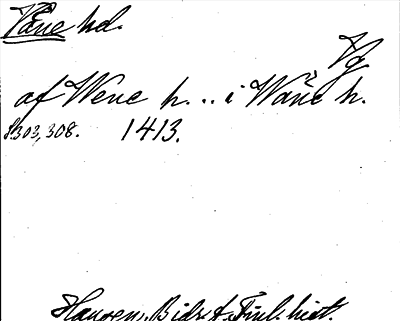 Våne hd.
Vg
af Wene h. .. i Wåne h.
s. 303, 308. 1413.
Hausen, Bidr. t. Finl. hist.